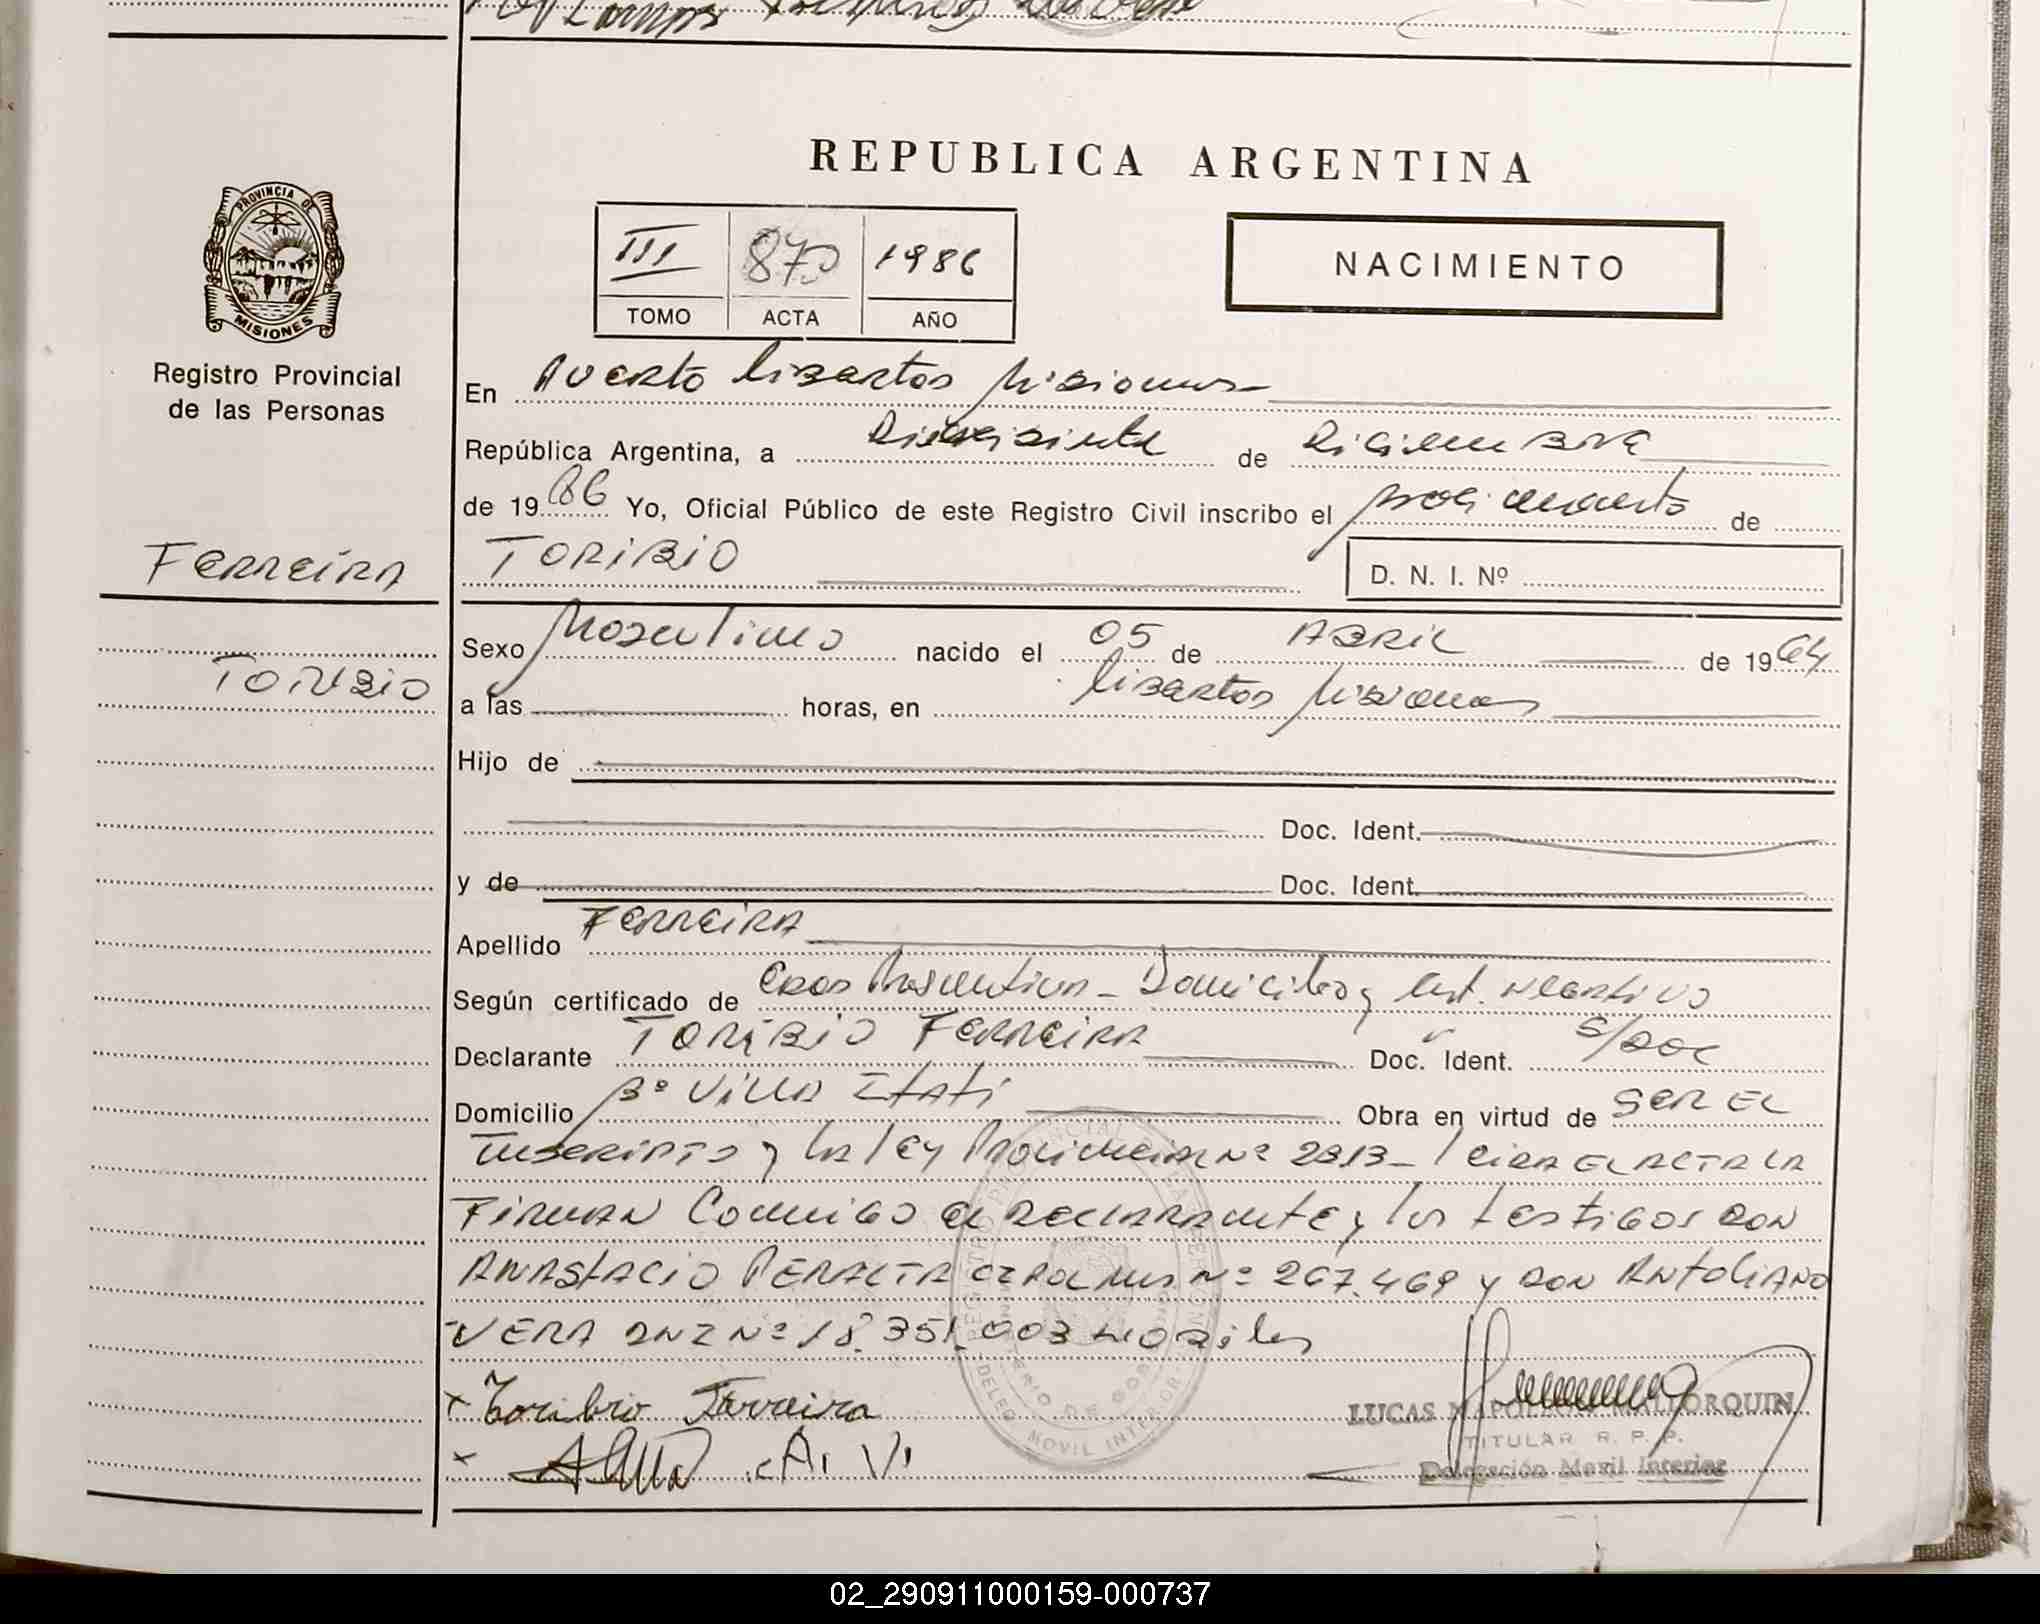 REPUBLICA ARGENTINA
PROVINCIA DE
MISIONES
Registro Provincial
de las Personas
III 870 1986
TOMO ACTA AÑO
NACIMIENTO
En Puerto Libertad Misiones
República Argentina, a Diecisiete de Diciembre
de 19 86 Yo, Oficial Público de este Registro Civil inscribo el nacimiento de
FERREIRA
TORIBIO
D. N. I. Nº
TORIBIO
Sexo Masculino nacido el 05 de ABRIL de 19 64
a las horas, en Libertad Misiones
Hijo de
Doc. Ident.
y de Doc. Ident.
Apellido FERREIRA
Según certificado de Edad Domicilio y Cert. Negativo
Declarante TORIBIO FERREIRA Doc. Ident. S/DOC
Domicilio Bº Villa Itatí Obra en virtud de SER EL
Inscripto y la Ley Provincial Nº 2313- Leida EL ACTA LA
FIRMAN Conmigo el DECLARANTE y los testigos DON
ANASTACIO PERALTA Nº 267.469 y DON ANTOLIANO
VERA DNI Nº 18.351.003
x Toribio Ferreira
x A. V.
LUCAS NAPOLEON MALLORQUIN
TITULAR R. P. P.
Delegación Movil Interior
02_290911000159-000737